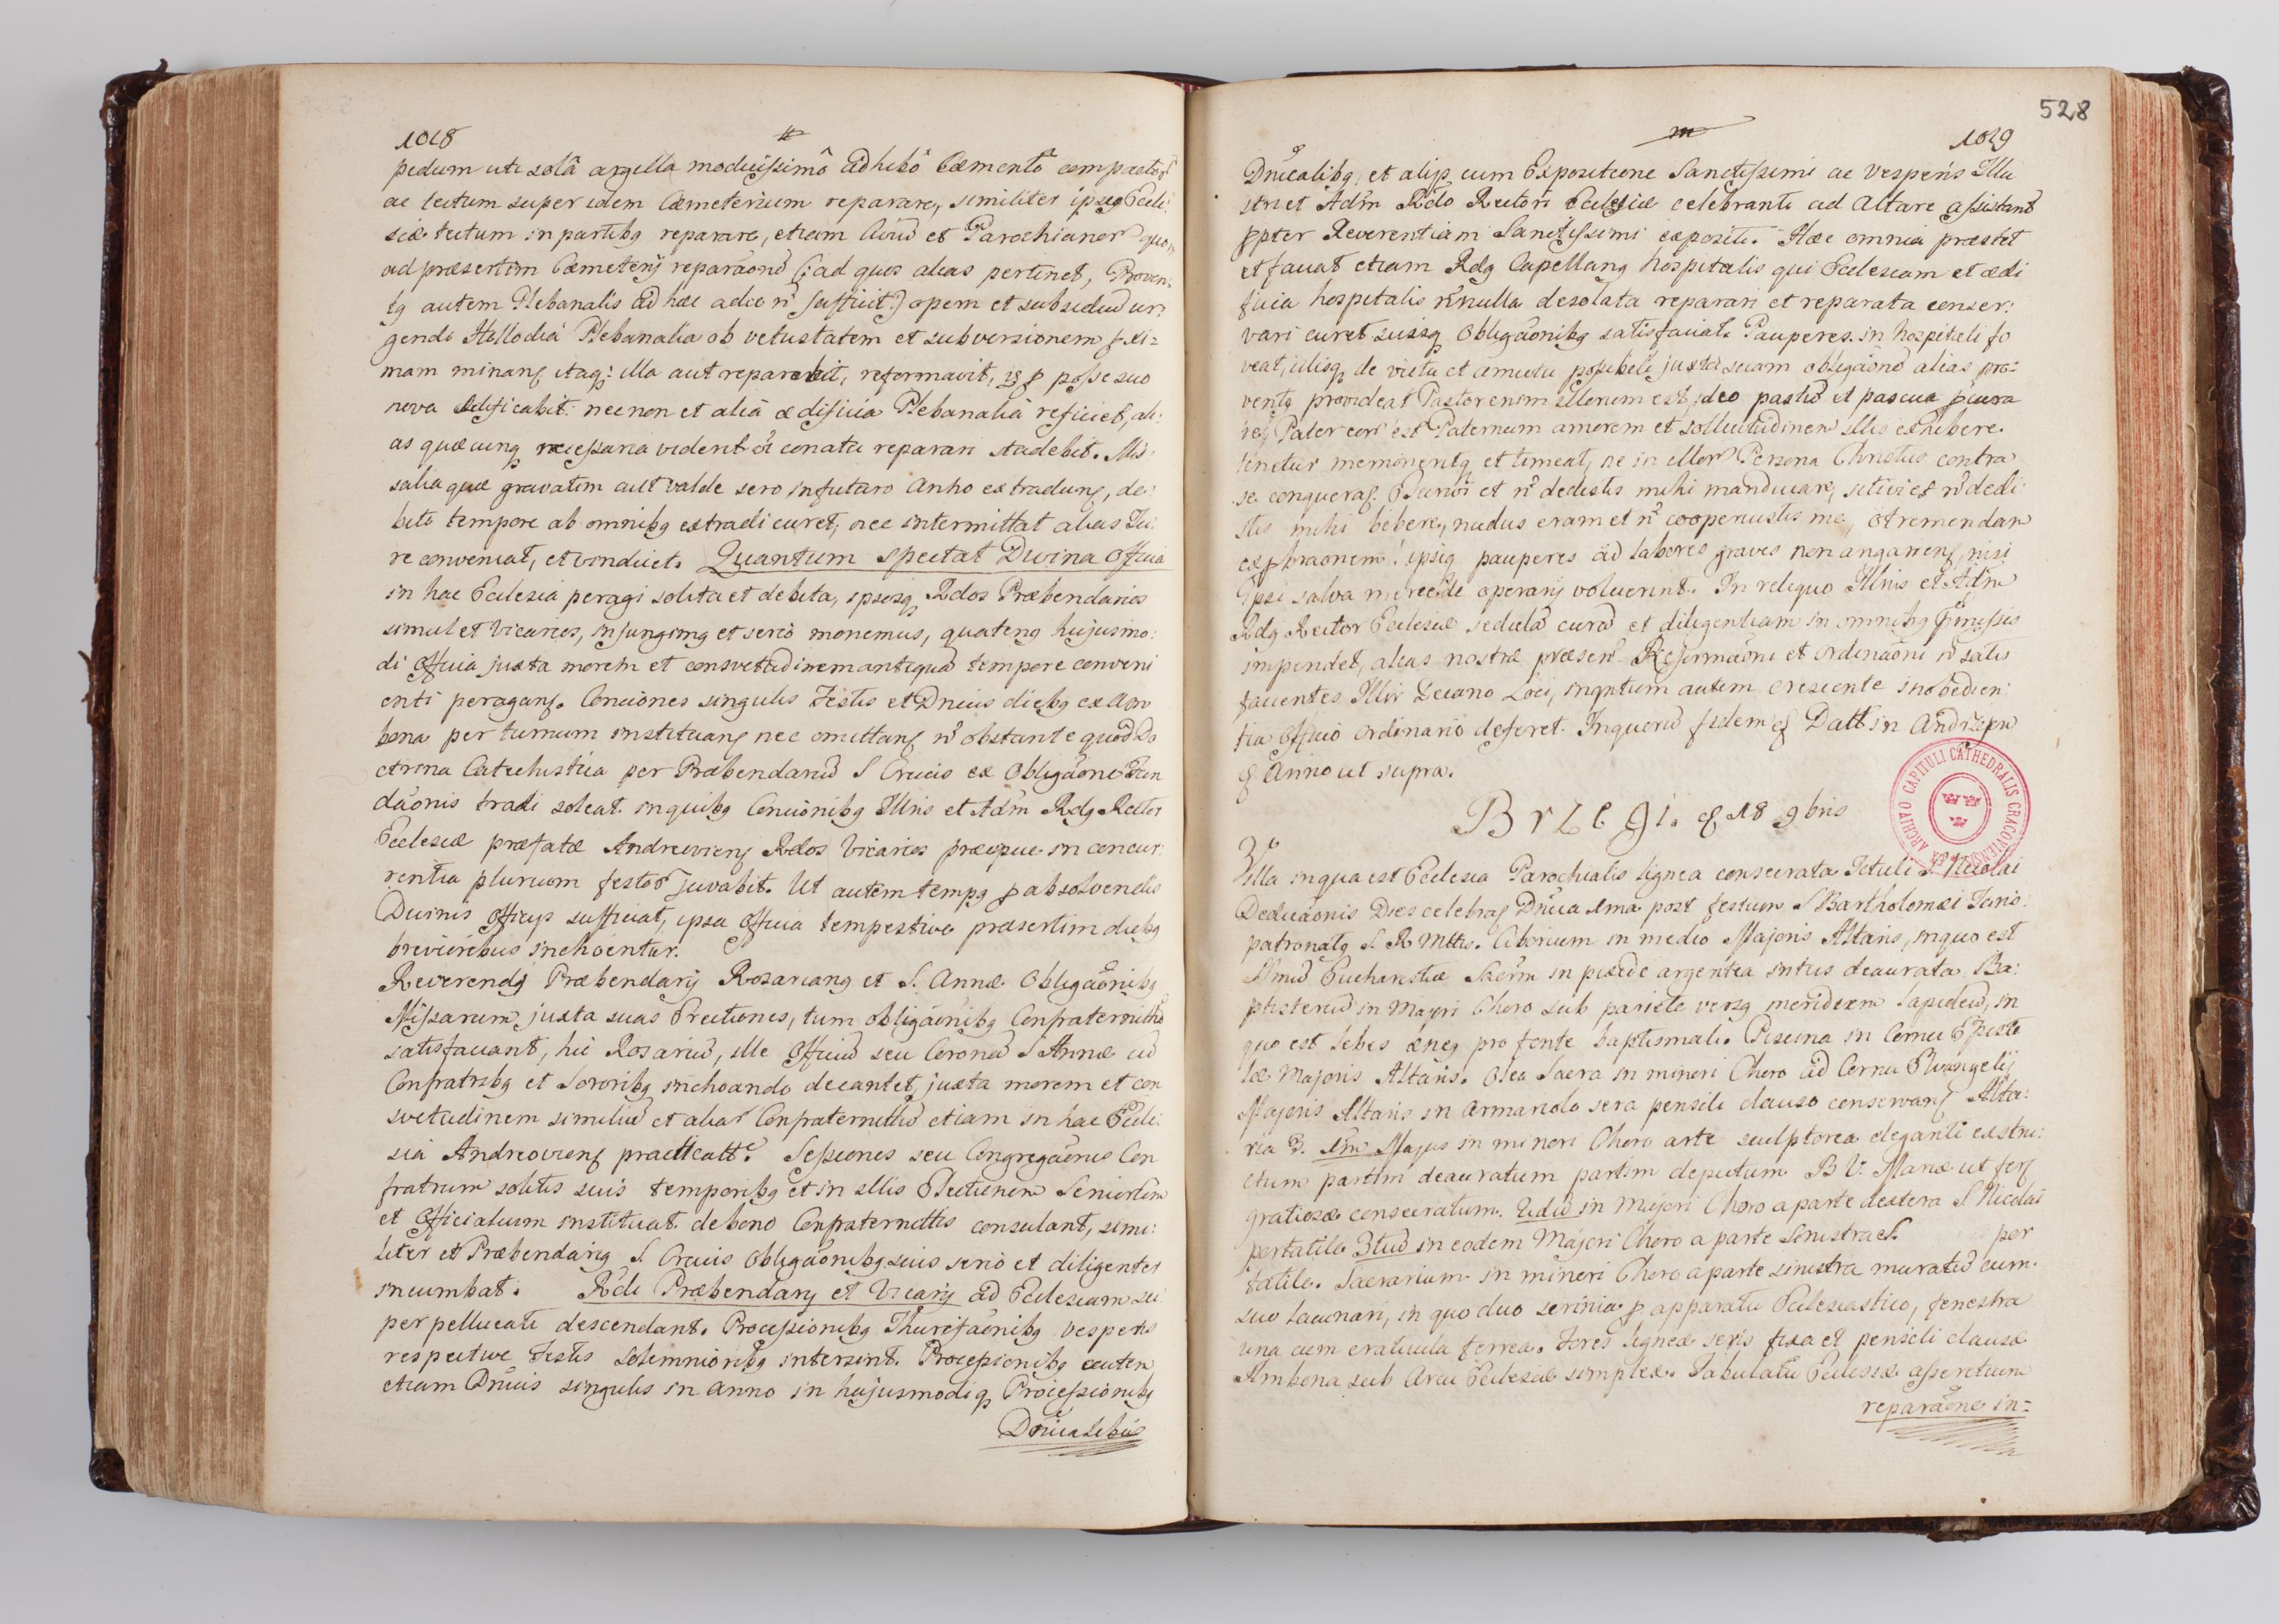 1018
pedum uti solâ argilla modicissimô adhibô Cæmentô compactos
ac tectum super idem Cæmeterium reparare, similiter ipsiq Eccle:
siæ tectum in partibq reparare, etiam Aviũ et Parochianor quo
ad præsertim Cæmeterij reparãonẽ (: ad quos alias pertinet, Proven:
tq autem Plebanalis ad hæc adeo n sufficit :) opem et subsidiũ ur:
gendo Hellodia Plebanalia ob vetustatem et subversionem pxi=
mam minans itaq: illa aut reparabit, reformavit, vs p posse suo
nova ædificabit: necnon et alia ædificia Plebanalia reficiet, ali:
as quæcunq necessaria viderit oi conatu reparari studebit. Mis:
salia quæ gravatim aut valde sero in futuro Anno extradunt, de:
bito tempore ab omnibq extradi curet, nec intermittat alias Ju:
re conveniat, et vindicet. Quantum spectat Divina Officia
in hac Ecclesia peragi solita et debita, ipsosq Rdos Præbendarios
simul et Vicarios, injungimq et serio monemus, quatenq hujusmo:
di Officia juxta morem et consvetudinem antiquã tempore conveni
enti peragant. Conciones singulis Festis et Dnicis diebq ex Am
bona per turnum instituant nec omittant n obstante quod Do
ctrina Catechistica per Præbendariũ S Crucis ex Obligãone Fun
dãonis tradi soleat. in quibq Concionibq Illris et Adm Rdq Rector
Ecclesiæ præfatæ Andreoviens Rdos Vicarios præcipue in concur:
rentia plurium festor juvabit. Ut autem tempq p absolvendis
Divinis Officijs sufficiat, ipsa Officia tempestive præsertim diebq
brevioribus inchoentur.
Reverendq Præbendarij Rosarianq et S. Annæ Obligãonibq
Missarum juxta suas Erectiones, tum obligãonibq Confraternittũ
satisfaciant, hic Rosariũ, ille Officiũ seu Coronã S Annæ cũ
Confratribq et Sororibq inchoando decantet, juxta morem et con
svetudinem similiũ et aliar Confraternittũ etiam in hac Eccle:
sia Andreoviens practicatt. Sessiones seu Congregãones Con
fratrum solitis suis temporibq et in illis Electionem Seniorum
et Officialium instituat de bono Confraternittis consulant, simi:
liter et Præbendariq S. Crucis Obligãonibq suis serio et diligenter
incumbat. Rdi Præbendarij et Vicarij ad Ecclesiam su
per pelliceati descendant. Processionibq Thurifãonibq vesperis
respective Festis Solemnioribq intersint. Processionibq autem
etiam Dnicis singulis in Anno in hujusmodiq Processionibq
Dnicalibus
528
1019
Dnicalibq, et alijs cum Expositione Sanctissimi ac Vesperis Illu
stri et Adm Rdo Rectori Ecclesiæ celebranti ad Altare assistant
ppter Reverentiam Sanctissimi expositi. Hæc omnia præstet
et faciat etiam Rdq Capellanq hospitalis qui Ecclesiam et ædi
ficia hospitalis nnulla desolata reparari et reparata conser:
vari curet suisq Obligãonibq satisfaciat. Pauperes in hospitali fo
veat, illisq de victu et amictu possibili juxta suam obligãonẽ alias pro:
ventq provideat Pastor enim illorum est, ideo pastũ et pascua pcura
ns Pater eor est Paternum amorem et sollicitudinem illis exhibere
tenetur memineritq et timeat, ne in illor Persona Christus contra
se conquerat. Esurivi et n dedistis mihi manducare, sitivi et n dedi
stis mihi bibere, nudus eram et n cooperuistis me, o tremendam
exprãonem! ipsiq pauperes ad labores graves non angarient, nisi
Ipsi salva mercede operarij voluerint. In reliquo Illris et Adm
Rdq Rector Ecclesiæ sedulã curã et diligentiam in omnibq pmissis
impendet, alias nostræ præsen Reformãoni et Ordinãoni n satis
facientes Illri Decano Loci, inqntum autem crescente inobedien:
tia Officio Ordinario deferet. In quorũ fidem & Datt in Andrzejow
& Anno ut supra.
Brzegi. & 18 9bris
Villa in qua est Ecclesia Parochialis lignea consecrata Tituli S Nicolai
Dedicãonis Dies celebrat Dnica 1ma post festum S Bartholomæi Juris:
patronatq S. R. Mttis. Ciborium in medio Majoris Altaris, in quo est
Ssmũ Eucharistiæ Sacrm in pixide argentea intus deaurata. Ba:
ptisteriũ in Majori Choro sub pariete versq meridiem lapideũ, in
quo est lebes æneq pro fonte baptismali. Piscina in Cornu Episto
læ Majoris Altaris. Olea Sacra in minori Choro ad Cornu Evangelij
Majoris Altaris in Armariolo sera pensili clauso conservant Alta:
ria 3. 1m Majus in minori Choro arte sculptorea eleganti exstru:
ctum partim deauratum partim depictum B V. Mariæ ut fert
gratiosæ consecratum. 2dũ in Majori Choro a parte dextera S Nicolai
portatile 3tiũ in eodem Majori Choro a parte Sinistra S. per
tatile. Sacrarium in minori Choro a parte sinistra muratũ cum
suo lacunari, in quo duo scrinia p apparatu Ecclesiastico, fenestra
una cum craticula ferrea. Fores ligneæ seris fixa et pensili clausæ
Ambona sub Arcu Ecclesiæ simplex. Tabulatũ Ecclesiæ asseretium
reparãone in=
EX ARCHIVO CAPITULI CATHEDRALIS CRACOVIENSIS